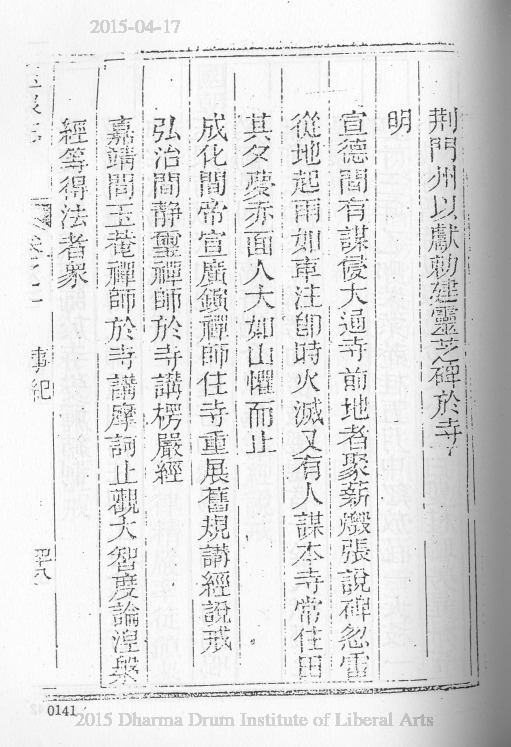 2015-04-17
荆門州以獻勅建靈芝碑於寺
明
宣德間有謀侵大通寺前地者聚薪燬張說碑忽雷
從地起雨如車注卽時火滅又有人謀本寺常住田
其夕夢赤面人大如山懼而止
成化間帝宣廣鎭禪師住寺重展舊規講經說戒
弘治間靜璽禪師於寺講楞嚴經
嘉靖間玉菴禪師於寺講摩訶止觀大智度論湼槃
經等得法者衆
卷之一
事紀
0141
2015 Dharma Drum Institute of Liberal Arts